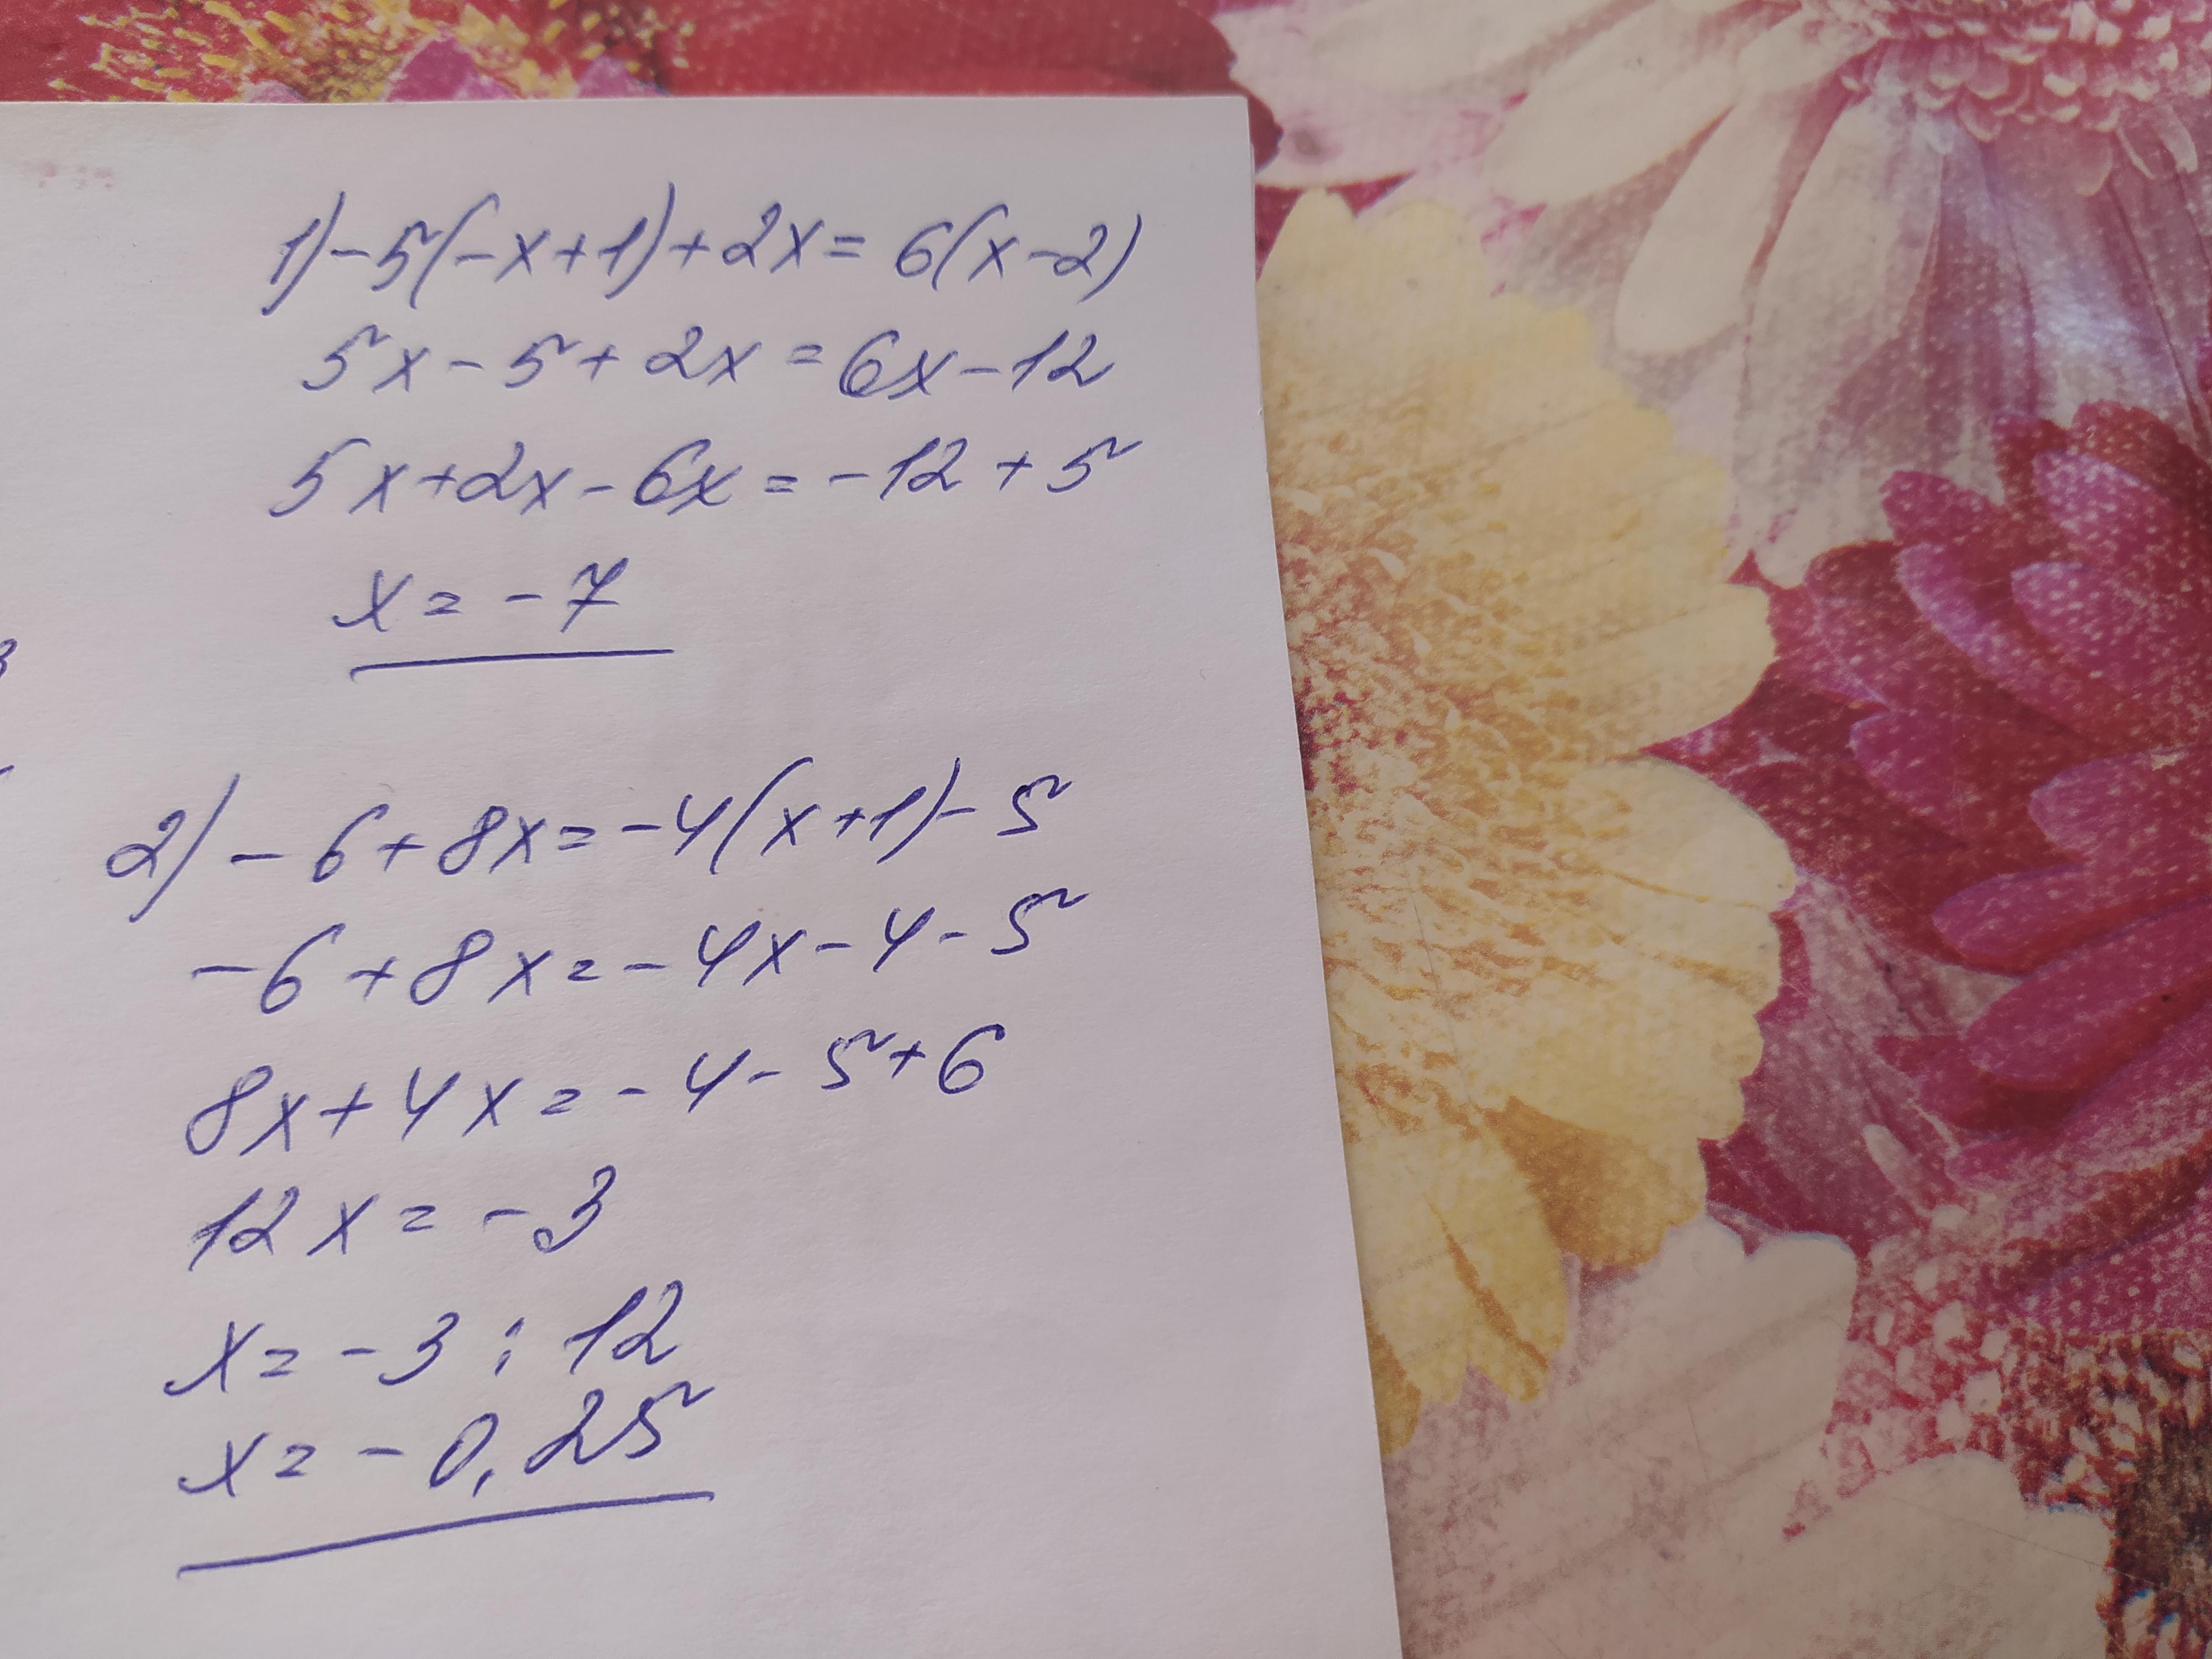 1) -5(-x+1)+2x=6(x-2)
5x-5+2x=6x-12
5x+2x-6x=-12+5
x=-7
2) -6+8x=-4(x+1)-5
-6+8x=-4x-4-5
8x+4x=-4-5+6
12x=-3
x=-3:12
x=-0,25